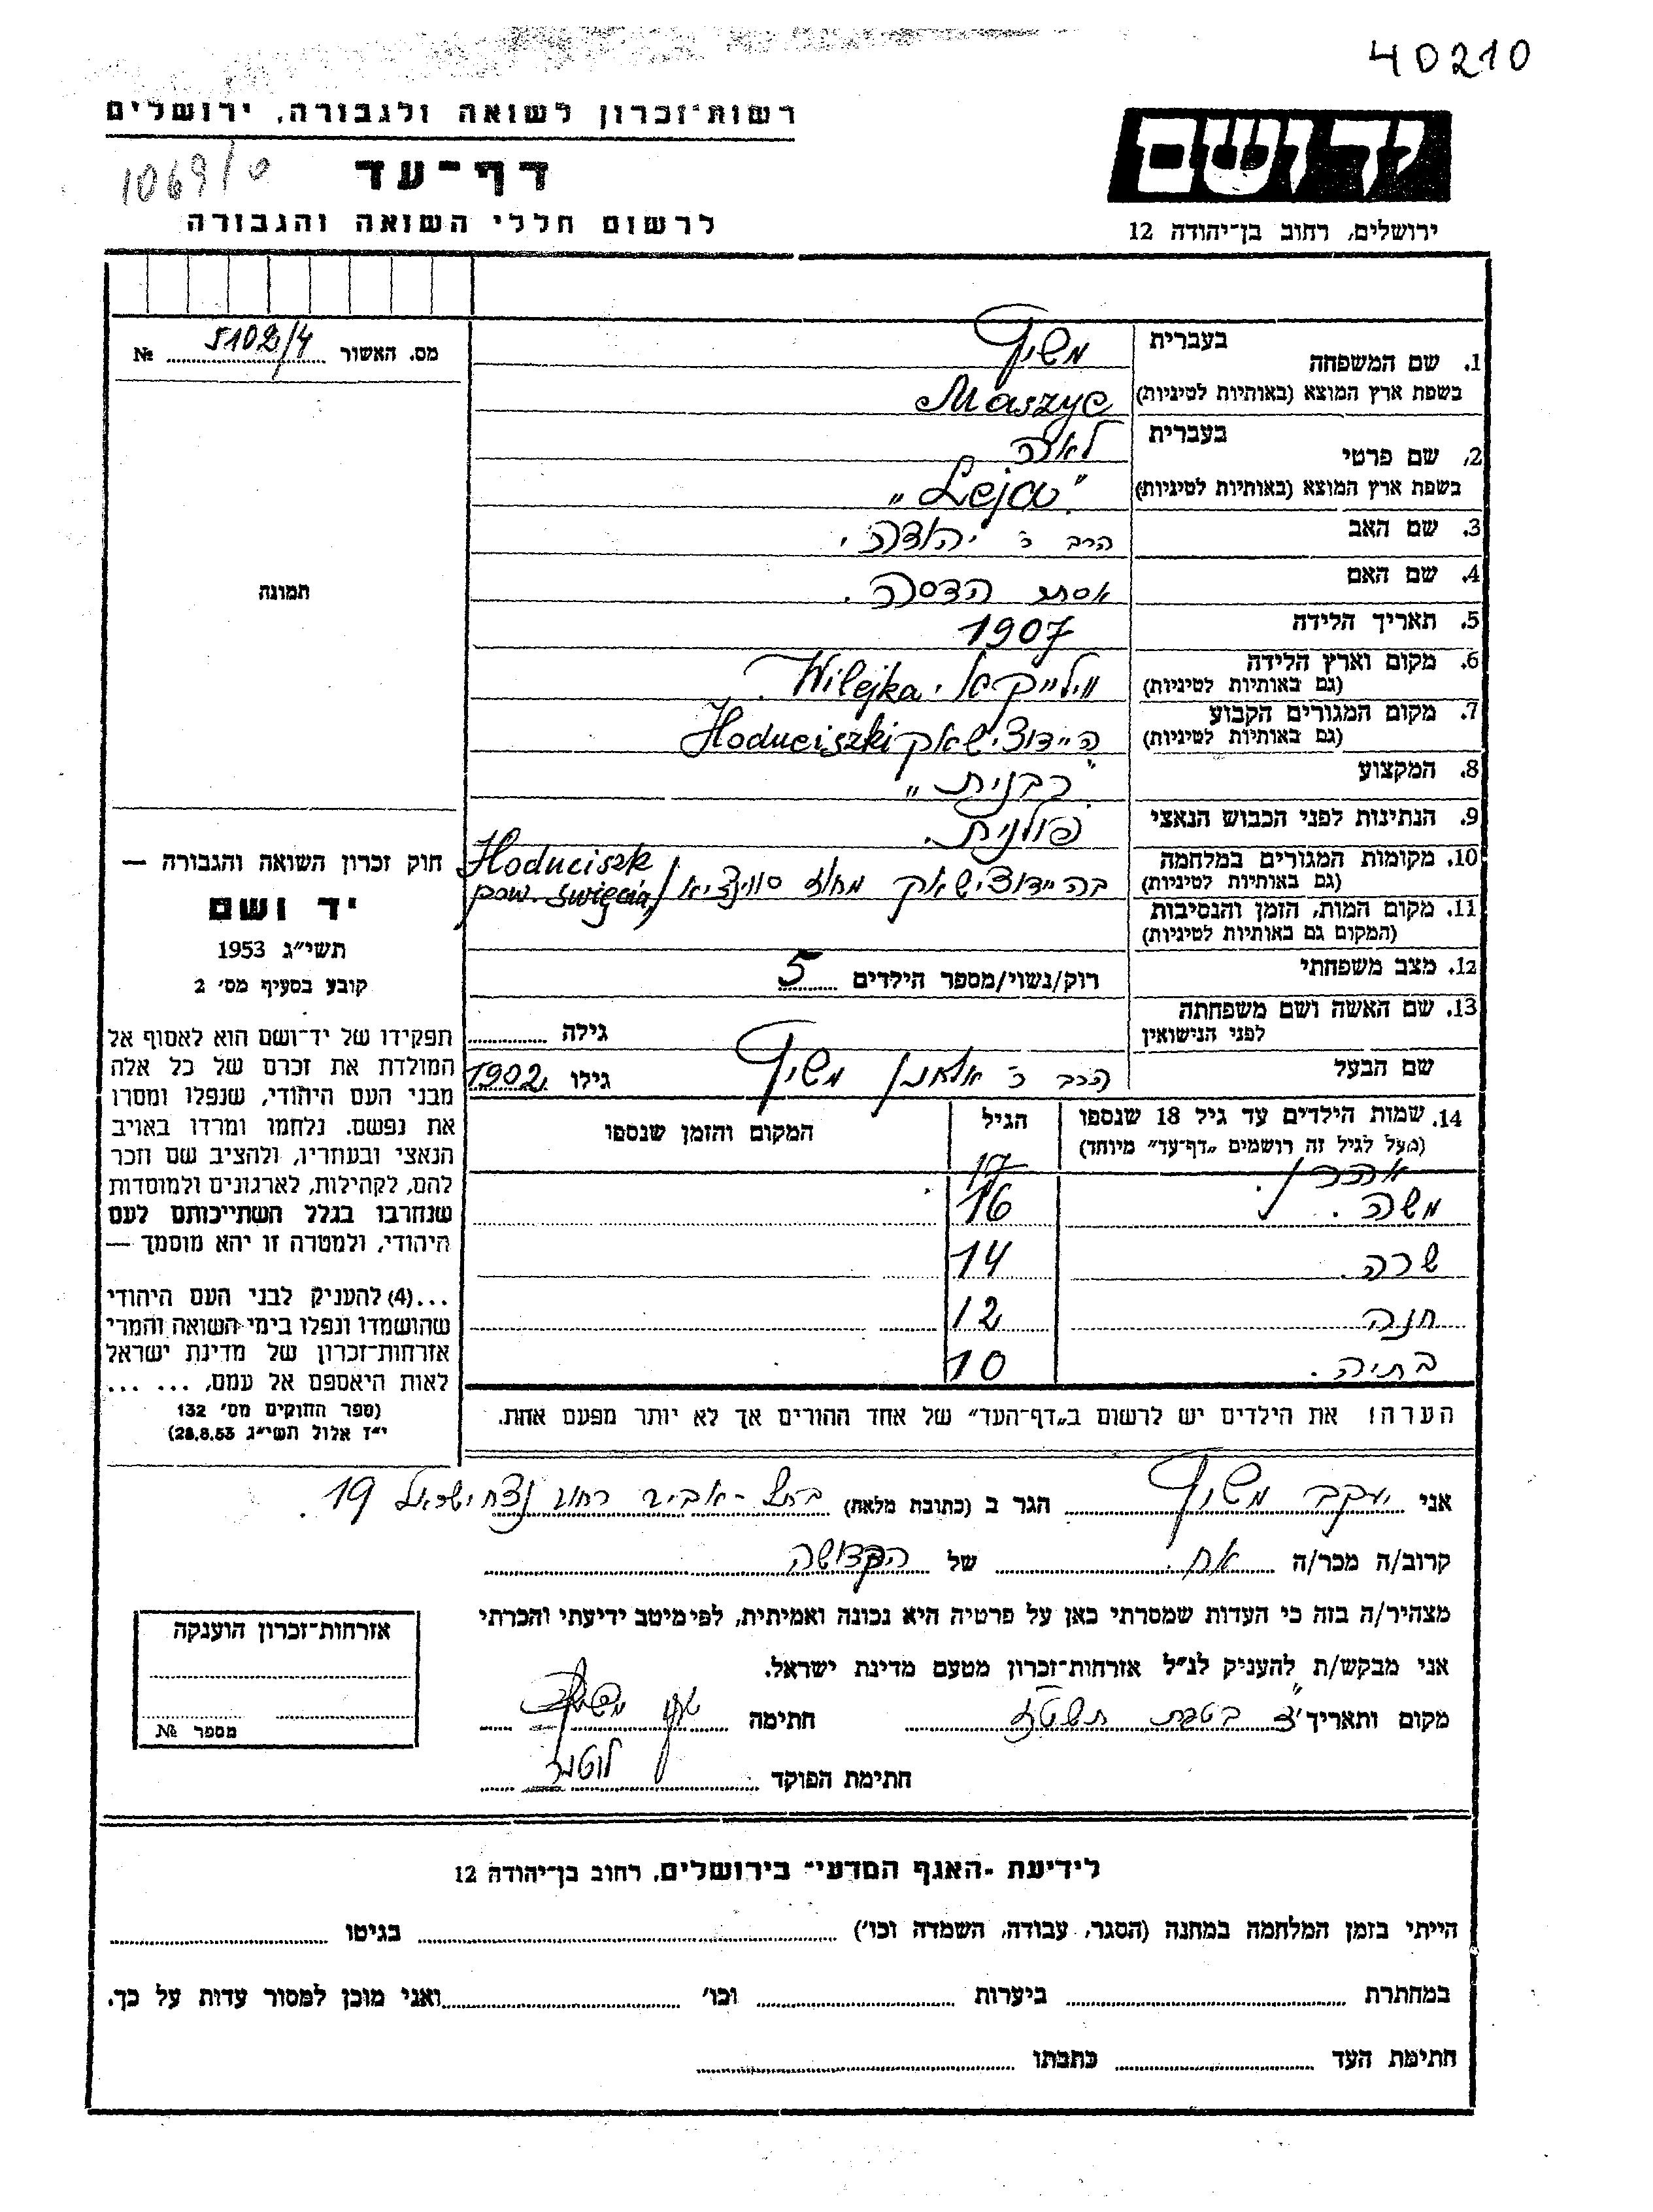 40210
רשות־זכרון לשואה ולגבורה, ירושלים
יד ושם
1069/0
דף־עד
לרשום חללי השואה והגבורה
ירושלים, רחוב בן־יהודה 12
מס. האשור 5102/4 №
תמונה
חוק זכרון השואה והגבורה —
יד ושם
תשי״ג 1953
קובע בסעיף מס׳ 2
תפקידו של יד־ושם הוא לאסוף אל
המולדת את זכרם של כל אלה
מבני העם היהודי, שנפלו ומסרו
את נפשם. נלחמו ומרדו באויב
הנאצי ובעוזריו, ולהציב שם וזכר
להם, לקהילות, לארגונים ולמוסדות
שנחרבו בגלל השתייכותם לעם
היהודי, ולמטרה זו יהא מוסמך —
...(4) להעניק לבני העם היהודי
שהושמדו ונפלו בימי השואה והמרי
אזרחות־זכרון של מדינת ישראל
לאות היאספם אל עמם, ... ...
(ספר החוקים מס׳ 132
י״ז אלול תשי״ג 28.8.53)
בעברית
1. שם המשפחה משיץ
בשפת ארץ המוצא (באותיות לטיניות) Maszyc
בעברית
2. שם פרטי לאה
בשפת ארץ המוצא (באותיות לטיניות) "Leja"
3. שם האב הרב ר׳ יהודה.
4. שם האם אסתר הדסה.
5. תאריך הלידה 1907
6. מקום וארץ הלידה ווילייקא. Wilejka.
(גם באותיות לטיניות)
7. מקום המגורים הקבוע היידוצישאק Hoduciszki
(גם באותיות לטיניות)
8. המקצוע "רבנית"
9. הנתינות לפני הכבוש הנאצי פולנית.
10. מקומות המגורים במלחמה בהיידוצישאק מחוז סווינציא / Hoduciszk
(גם באותיות לטיניות) pow. Święcia/
11. מקום המות, הזמן והנסיבות
(המקום גם באותיות לטיניות)
12. מצב משפחתי רוק/נשוי/מספר הילדים 5
13. שם האשה ושם משפחתה
לפני הנישואין גילה
שם הבעל הרב ר׳ משיץ גילו 1902
14. שמות הילדים עד גיל 18 שנספו הגיל המקום והזמן שנספו
(מעל לגיל זה רושמים „דף־עד״ מיוחד)
אהרן. 17
משה. 16
שרה. 14
חנה 12
בתיה. 10
הערה! את הילדים יש לרשום ב„דף־העד״ של אחד ההורים אך לא יותר מפעם אחת.
אני יעקב משיץ הגר ב (כתובת מלאה) בתל-אביב רחוב נצח ישראל 19.
קרוב/ה מכר/ה אח. של הקדושה
מצהיר/ה בזה כי העדות שמסרתי כאן על פרטיה היא נכונה ואמיתית, לפי מיטב ידיעתי והכרתי
אני מבקש/ת להעניק לנ״ל אזרחות־זכרון מטעם מדינת ישראל.
מקום ותאריך בטבת חתימה
חתימת הפוקד
אזרחות־זכרון הוענקה
מספר №
לידיעת ־האגף המדעי־ בירושלים, רחוב בן־יהודה 12
הייתי בזמן המלחמה במחנה (הסגר, עבודה, השמדה וכו׳) בגיטו
במחתרת ביערות וכו׳ ואני מוכן למסור עדות על כך.
חתימת העד כתבתו